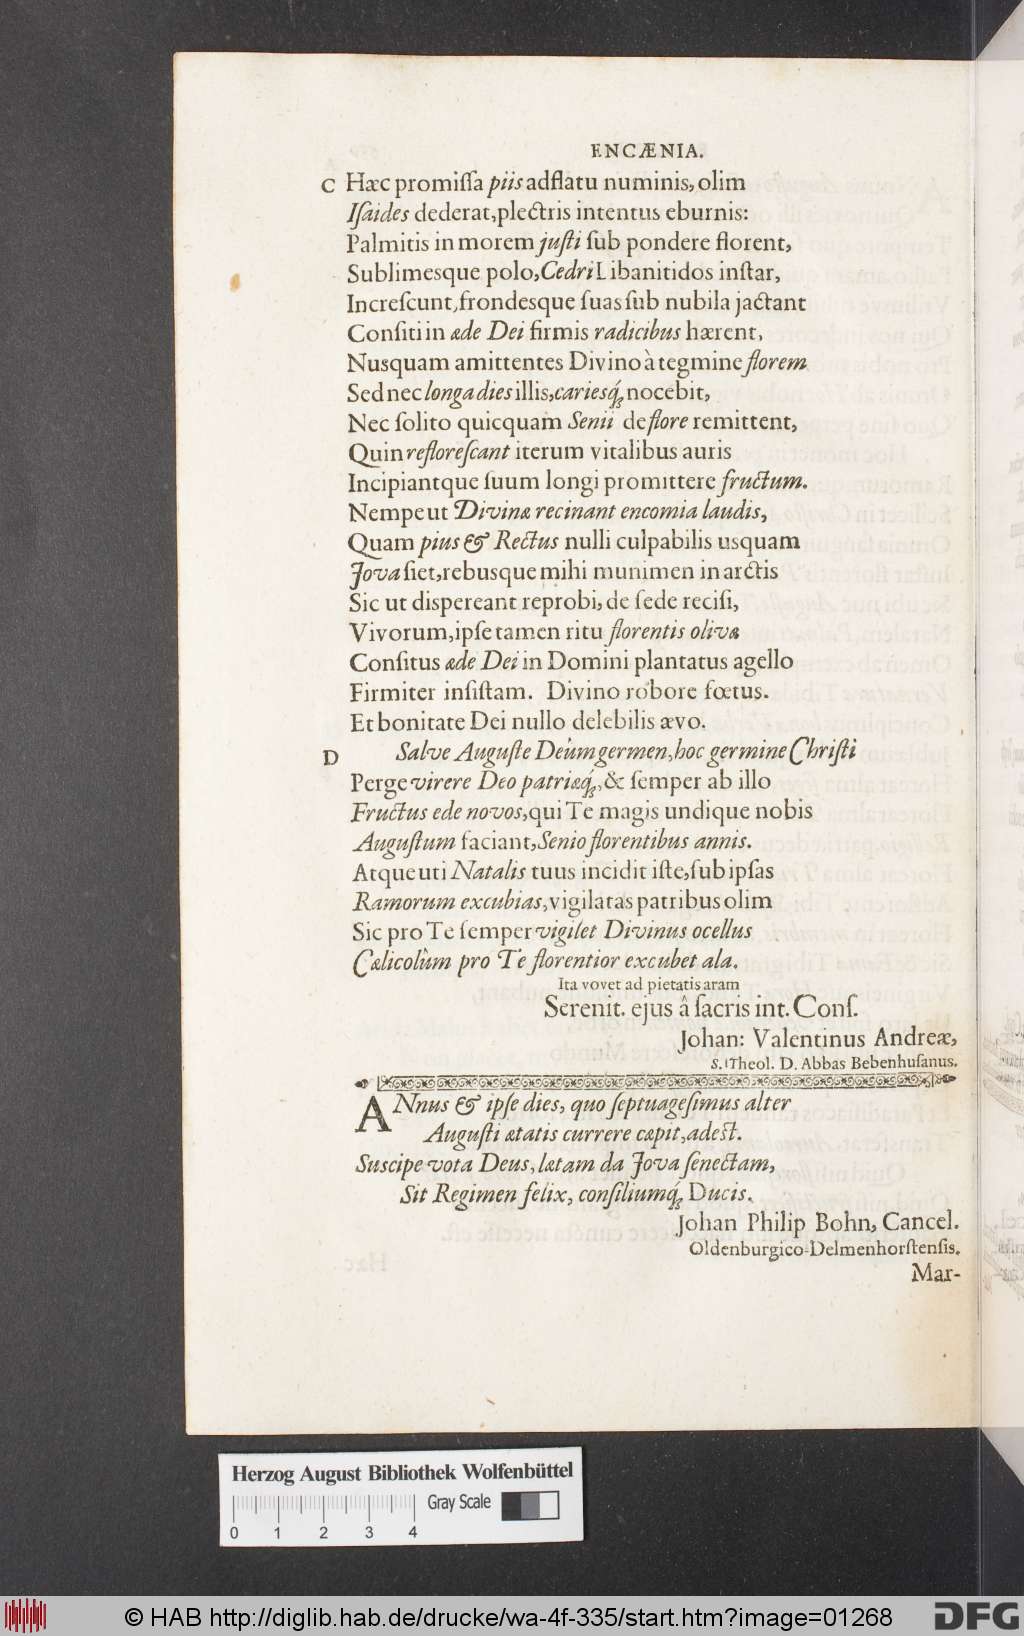 ENCÆNIA.
C Hæc promiſſa piis adflatu numinis, olim
Iſaides dederat, plectris intentus eburnis:
Palmitis in morem juſti ſub pondere florent,
Sublimesque polo, Cedri Libanitidos inſtar,
Increſcunt, frondesque ſuas ſub nubila jactant
Conſiti in æde Dei firmis radicibus hærent,
Nusquam amittentes Divino à tegmine florem
Sed nec longa dies illis, cariesq́; nocebit,
Nec ſolito quicquam Senii de flore remittent,
Quin refloreſcant iterum vitalibus auris
Incipiantque ſuum longi promittere fructum.
Nempe ut Divinæ recinant encomia laudis,
Quam pius & Rectus nulli culpabilis usquam
Jova ſiet, rebusque mihi munimen in arctis
Sic ut dispereant reprobi, de ſede reciſi,
Vivorum, ipſe tamen ritu florentis olivæ
Conſitus æde Dei in Domini plantatus agello
Firmiter inſiſtam. Divino robore fœtus.
Et bonitate Dei nullo delebilis ævo.
D Salve Auguſte Deûm germen, hoc germine Chriſti
Perge virere Deo patriæq́;, & ſemper ab illo
Fructus ede novos, qui Te magis undique nobis
Auguſtum faciant, Senio florentibus annis.
Atque uti Natalis tuus incidit iſte, ſub ipſas
Ramorum excubias, vigilatas patribus olim
Sic pro Te ſemper vigilet Divinus ocellus
Cælicolûm pro Te florentior excubet ala.
Ita vovet ad pietatis aram
Serenit. ejus â ſacris int. Conſ.
Johan: Valentinus Andreæ,
S. Theol. D. Abbas Bebenhuſanus.
ANnus & ipſe dies, quo ſeptuageſimus alter
Auguſti ætatis currere cæpit, adeſt.
Suscipe vota Deus, lætam da Jova ſenectam,
Sit Regimen felix, conſiliumq́; Ducis.
Johan Philip Bohn, Cancel.
Oldenburgico-Delmenhorſtenſis.
Mar-
Herzog August Bibliothek Wolfenbüttel
Gray Scale
0 1 2 3 4
© HAB http://diglib.hab.de/drucke/wa-4f-335/start.htm?image=01268
DFG